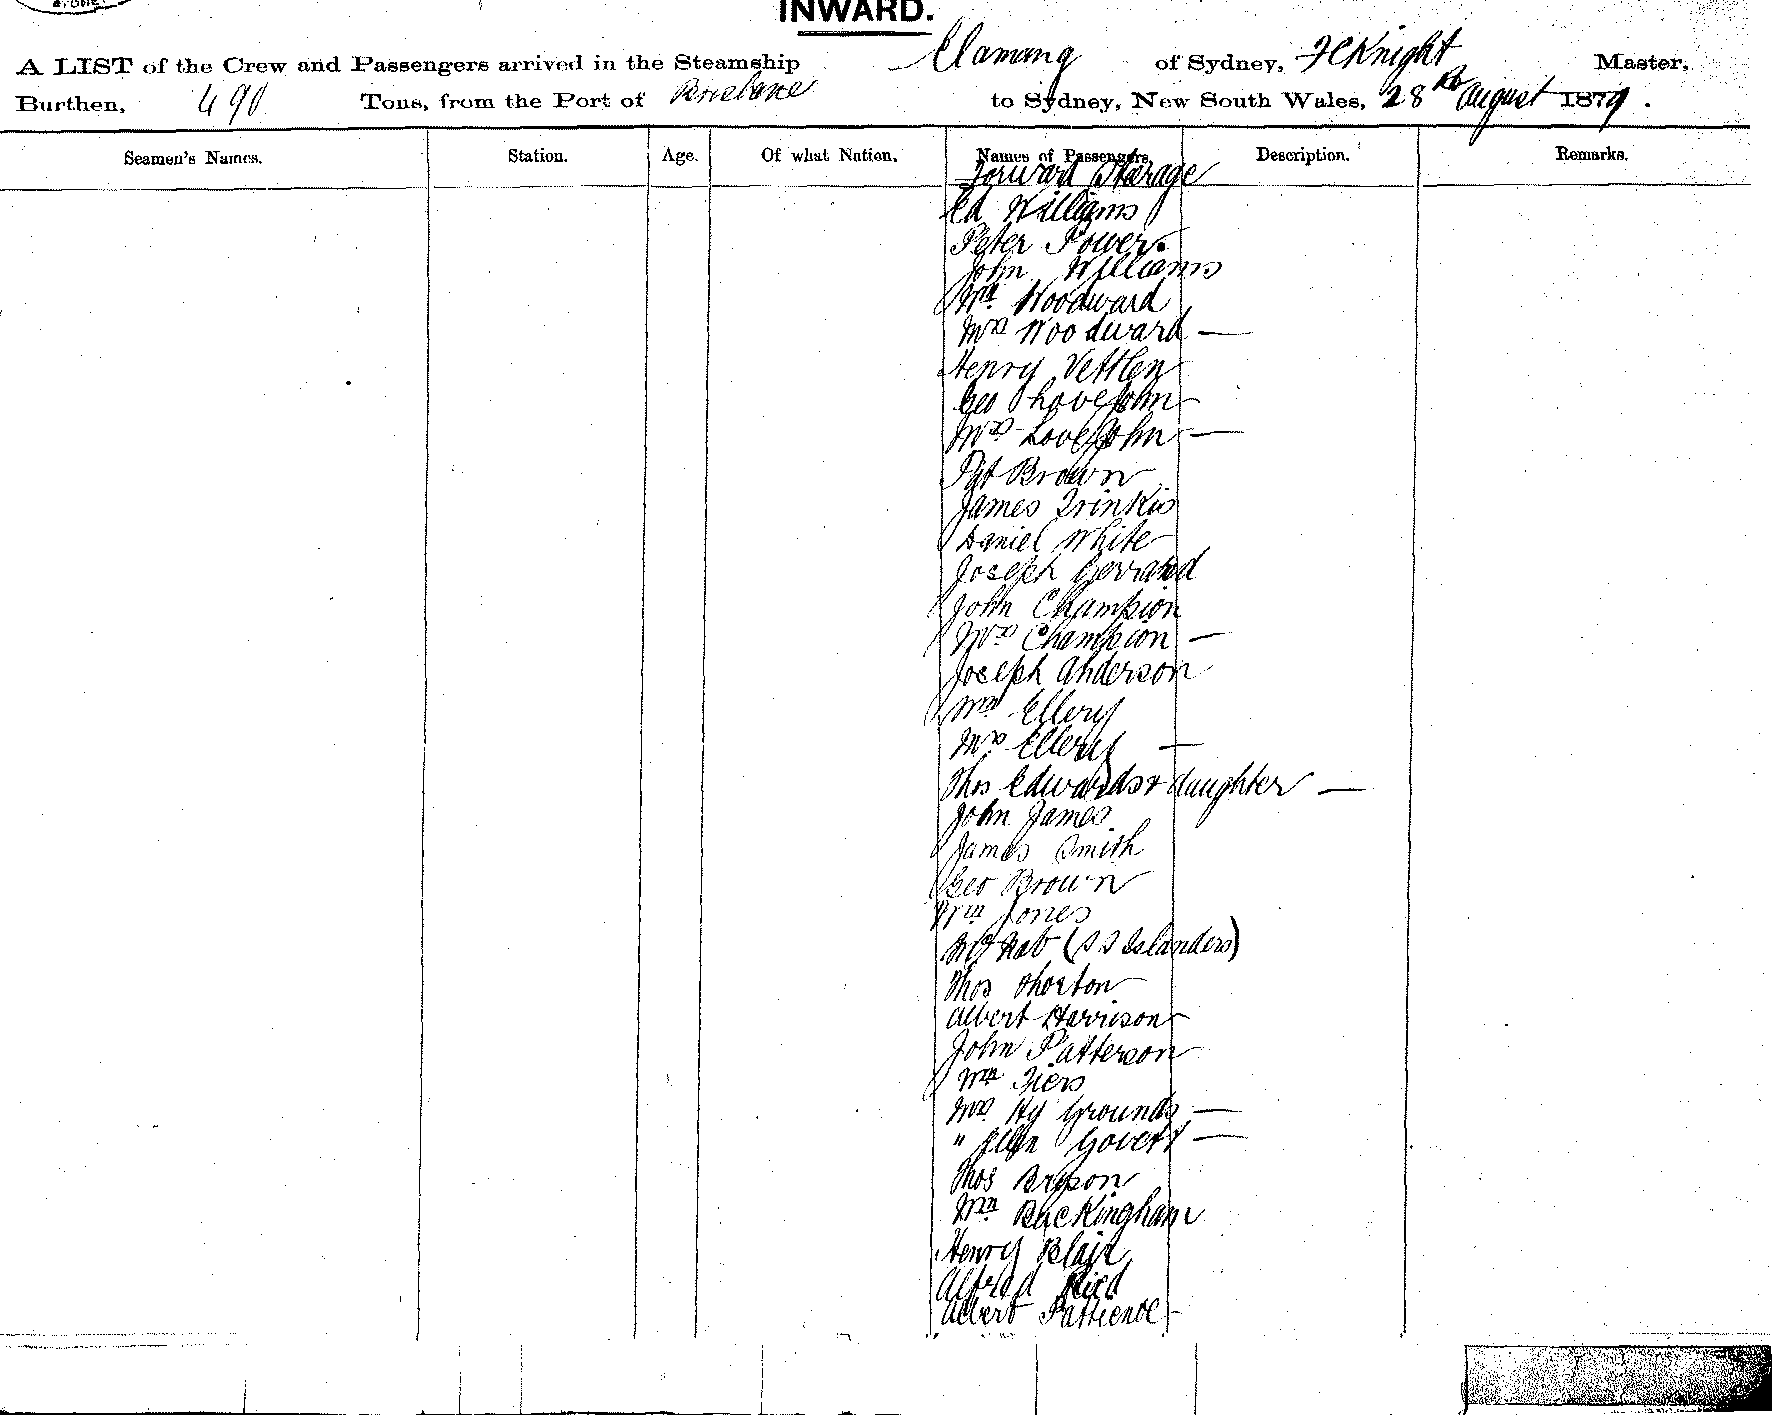 INWARD.
A LIST of the Crew and Passengers arrived in the Steamship Elamang of Sydney, F C Knight Master,
Burthen, 490 Tons, from the Port of Brisbane to Sydney, New South Wales, 28th August 1879.
Seamen's Names. Station. Age. Of what Nation. Names of Passengers. Description. Remarks.
Forward Steerage
Ed Williams
Peter Power
John Williams
Wm Woodward
Mrs Woodward —
Henry Vettlen
Geo Lovejohn
Mrs Lovejohn —
Pat Brown
James Trinkis
Daniel White
Joseph Gerrard
John Champion
Mrs Champion —
Joseph Anderson
Wm Ellery
Mrs Ellery —
Thos Edwards & daughter —
John James
James Smith
Geo Brown
Wm Jones
McNab (S S Islanders)
Thos Thorton
Albert Harrison
John Patterson
Wm Tiers
Mrs Hy Grounds —
" Ellen Govett —
Thos Bryson
Wm Buckingham
Henry Blair
Alfred Ried
Albert Pattience